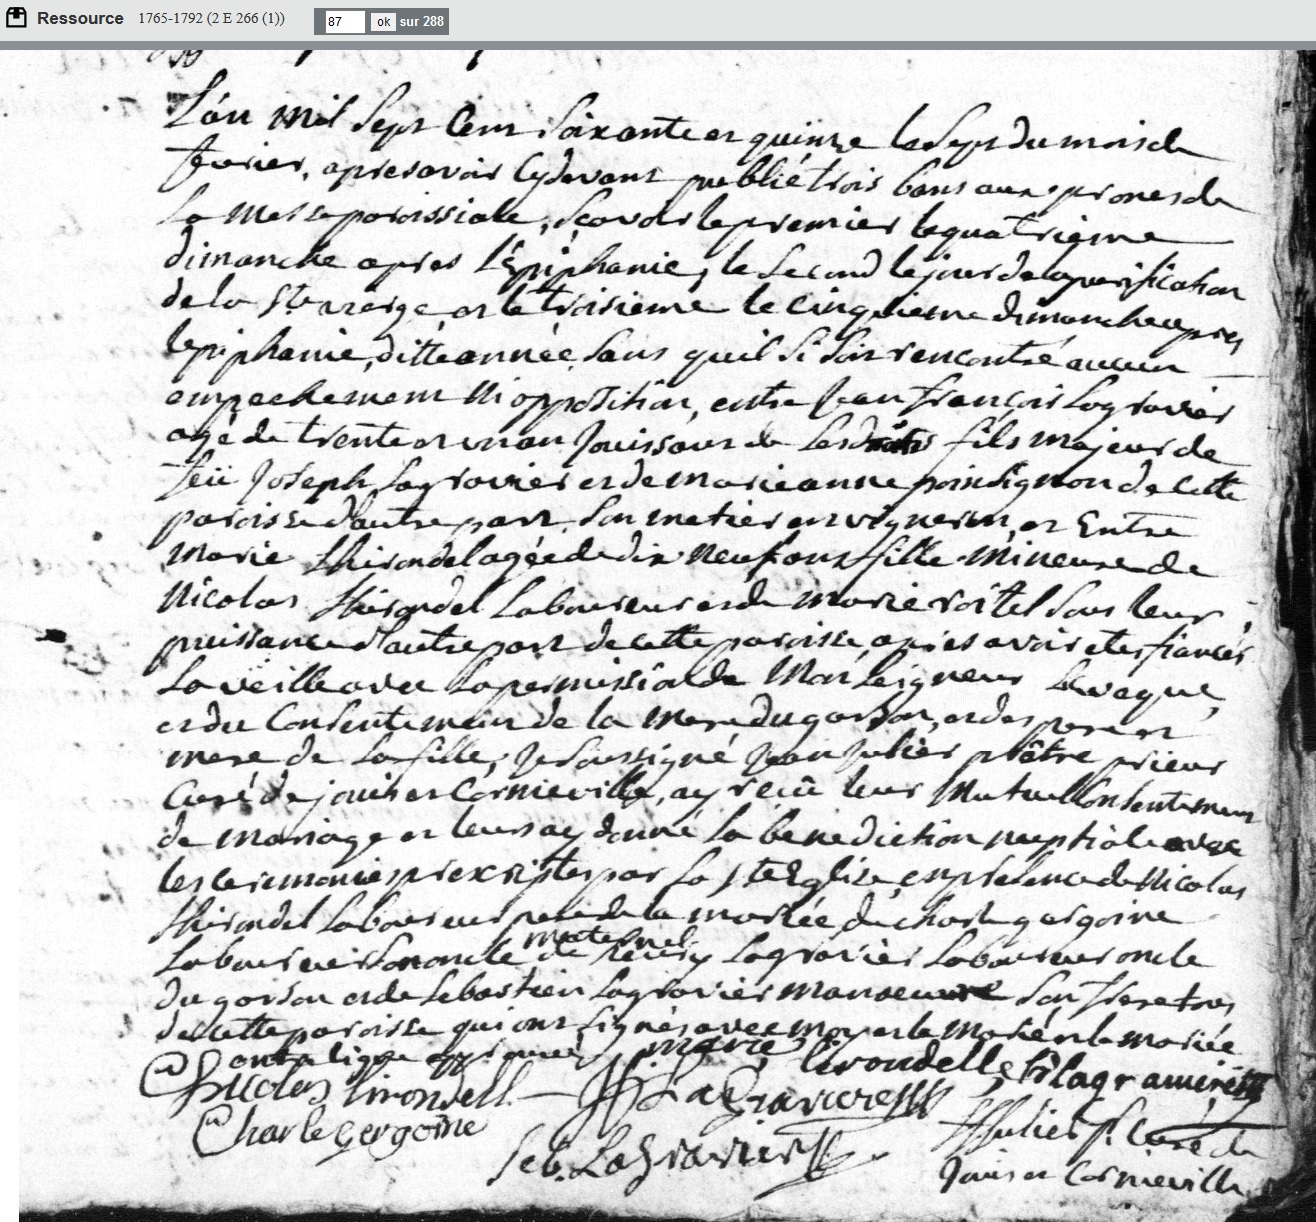 Ressource 1765-1792 (2 E 266 (1)) 87 ok sur 288
L'an mil Sept Cent Soixante et quinze le Sept du mois de
fevrier, apres avoir Cydevant publié trois bans aux prones de
La Messe paroissiale, Scavoir le premier le quatrieme
dimanche apres l'Epiphanie, le Second le jour de la purification
de la Ste vierge, et le troisieme le Cinquieme dimanche apres
lepiphanie, ditte année, Sans quil Si Soit rencontré aucun
empechement Ni opposition, entre Jean François Lagravier
agé de trente et un an Jouissant de Ses droits fils majeur de
feü Joseph Lagravier et de marie anne poinsignon de Cette
paroisse d'autre part, Son metier est vigneron, et Entre
Marie thirondel agée de dix Neuf ans fille Mineure de
Nicolas thirondel Laboureur et de marie voitel Sous leur
puissance d'autre part de cette paroisse, apres avoir etes fiancés
La veille avec La permission de Monseigneur Leveque,
et du Consentement de la Mere du garson, et des pere et
mere de La fille, Je Soussigné Jean Julier prêtre prieur
Curé de jouis et Cornieville, ay reçû leur Mutuel Consentement
de mariage et leurs ay donné la bénediction nuptiale avec
les Ceremonies prexriptes par La Ste Eglise en presence de Nicolas
thirondel Laboureur pere de la mariée de charle gergoine
Laboureur Son oncle maternel de Remy Lagravier Laboureur oncle
du garson et de Sebastien Lagravier manoeuvre Son frere tous
de Cette paroisse qui ont Signés avec moy et le Marié et la mariée
onta ligne approuvée marie lirondelle R lagraviere
Nicolas lirondell JF La Gravierre
Charle Gergoine Seb. LaGravier JJulier p. Curé de
Jouis et Cornieville